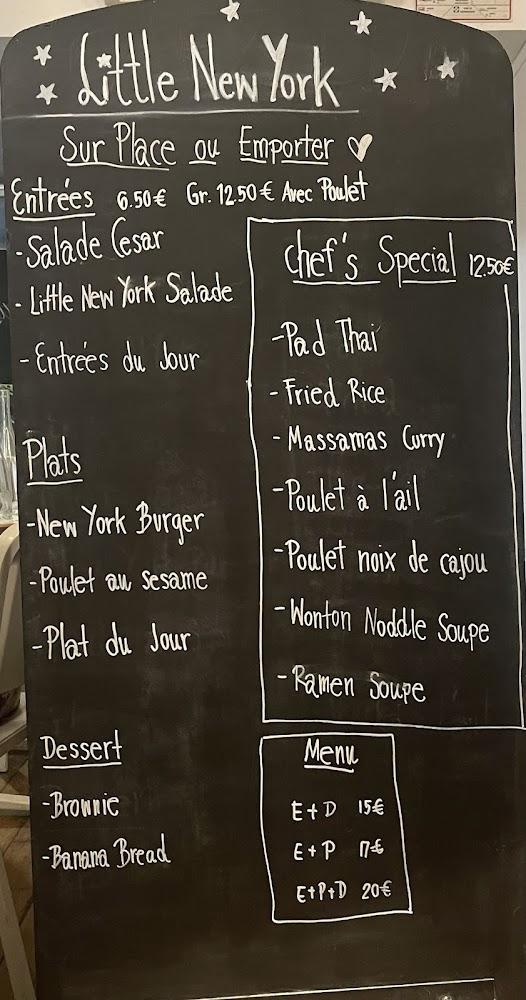 Little New York
Sur Place ou Emporter
Entrées 6.50€ Gr. 12.50€ Avec Poulet
- Salade Cesar
- Little New York Salade
- Entrées du Jour
Plats
- New York Burger
- Poulet au sesame
- Plat du Jour
Dessert
- Brownie
- Banana Bread
Chef's Special 12.50€
- Pad Thai
- Fried Rice
- Massamas Curry
- Poulet à l'ail
- Poulet noix de cajou
- Wonton Noddle Soupe
- Ramen Soupe
Menu
E+D 15€
E+P 17€
E+P+D 20€